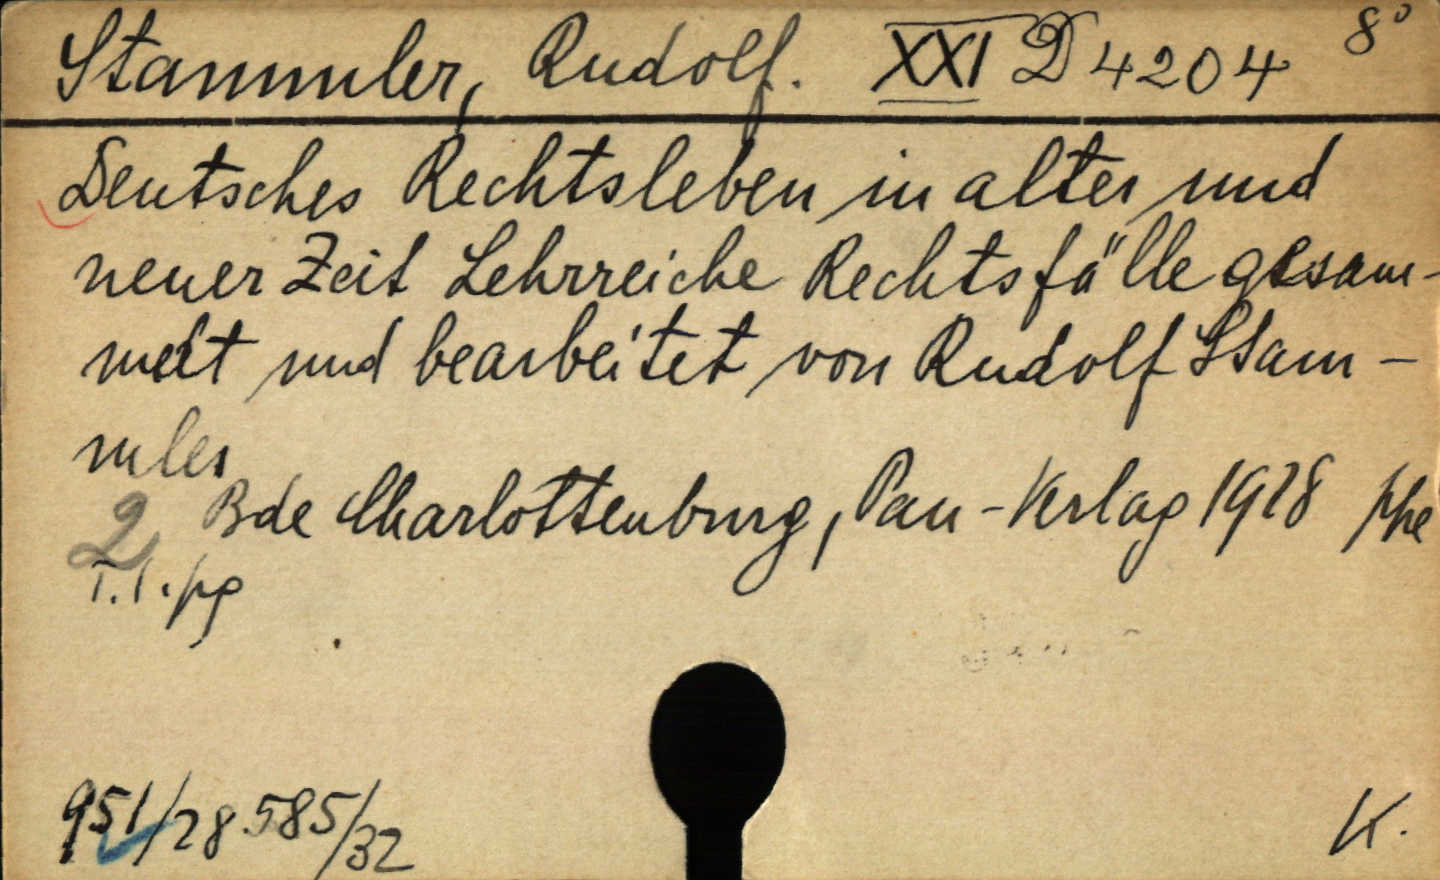 Stammler, Rudolf. XXI D 4204 8°
Deutsches Rechtsleben in alter und
neuer Zeit Lehrreiche Rechtsfälle gesam-
melt und bearbeitet von Rudolf Stam-
mler
2 Bde Charlottenburg, Pan-Verlag 1928
T.1.
951/28 585/32
K.